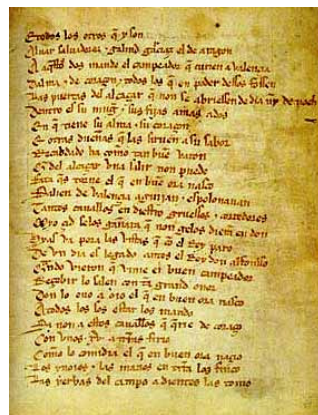 E todos los otros que y son
Aluar saluadorez & galind garçiaz el de aragon
A aquestos dos mando el campeador que curien a valençia
Dalma & de coraçon & todos los que en poder dessos fossen
Las puertas del alcaçar que non se abriessen de dia nin de noch
Dentro es su mugier & sus fijas amas ados
En que tiene su alma & su coraçon
E otras dueñas que las siruen a su sabor
Recabdado ha como tan buen varon
Que del alcaçar vna salir non puede
Fata ques torne el que en buen ora nasco
Salien de valençia aguijan & espolonauan
Tantos cauallos en diestro gruessos & corredores
Myo çid selos gañara que non gelos dieran en don
Hyas va pora las vistas que con el Rey paro
De vn dia es legado antes el Rey don alfonsso
Quando vieron que vinie el buen campeador
Reçebir lo salen con tan grand onor
Don lo ouo a oio el que en buen ora nasco
A todos los sos estar los mando
Si non a estos caualleros que querie de coraçon
Con vnos .xv. a tierras firio
Como lo comidia el que en buen ora naçio
Los ynoios & las manos en tierra los finco
Las yerbas del campo a dientes las tomo